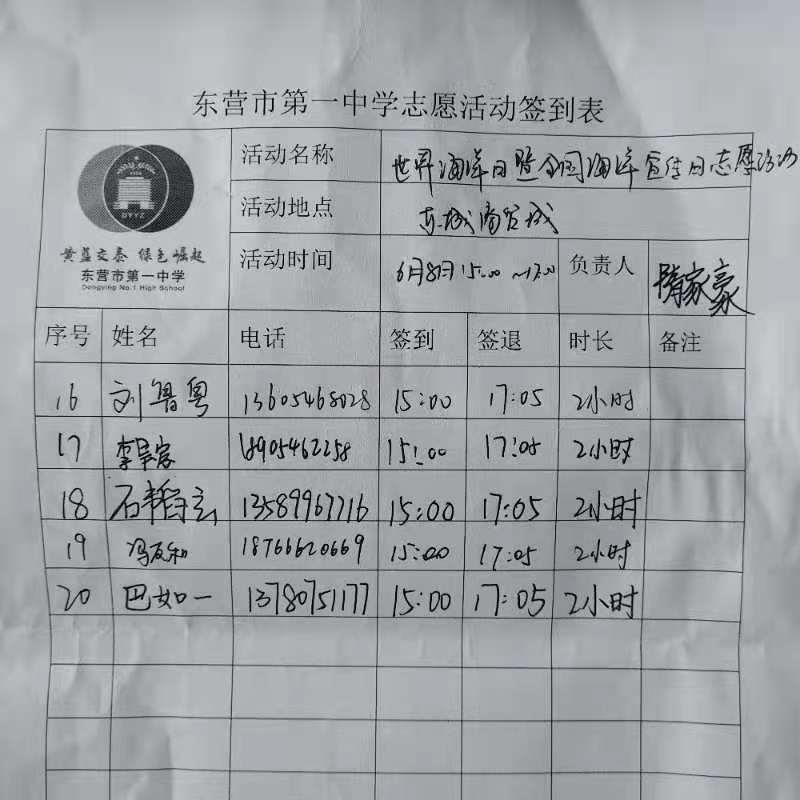 东营市第一中学志愿活动签到表
活动名称 世界海洋日暨全国海洋宣传日志愿活动
活动地点 东城
活动时间 6月8日15:00~17:00 负责人 隋家豪
DYYZ
黄蓝交泰 绿色崛起
东营市第一中学
Dongying No.1 High School
序号 姓名 电话 签到 签退 时长 备注
16 刘鲁粤 13605468028 15:00 17:05 2小时
17 李昊宸 18905462258 15:00 17:05 2小时
18 石韬玄 13589967716 15:00 17:05 2小时
19 冯友和 18766620669 15:00 17:05 2小时
20 巴如一 13780751177 15:00 17:05 2小时